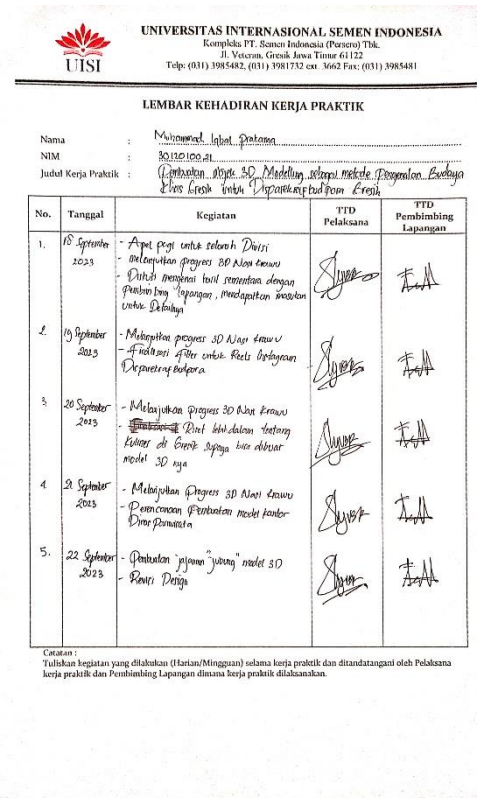 UNIVERSITAS INTERNASIONAL SEMEN INDONESIA
Kompleks PT. Semen Indonesia (Persero) Tbk.
Jl. Veteran, Gresik Jawa Timur 61122
Telp: (031) 3985482, (031) 3981732 ext. 3662 Fax: (031) 3985481
UISI
LEMBAR KEHADIRAN KERJA PRAKTIK
Nama : Muhammad Iqbal Pratama
NIM : 3012010021
Judul Kerja Praktik : Pembuatan objek 3D Modelling sebagai metode Pengenalan Budaya
Khas Gresik untuk Disparekrafbudpora Gresik
No. Tanggal Kegiatan TTD Pelaksana TTD Pembimbing Lapangan
1. 18 September 2023
- Apel pagi untuk seluruh Divisi
- Melanjutkan progress 3D Nasi Krawu
- Diskusi mengenai hasil sementara dengan
pembimbing lapangan, mendapatkan masukan
untuk Detailnya
2. 19 September 2023
- Melanjutkan progress 3D Nasi Krawu
- Finalisasi Filter untuk Reels Instagram
Disparekrafbudpora
3. 20 September 2023
- Melanjutkan Progress 3D Nasi Krawu
- Riset lebih dalam tentang
Kuliner di Gresik supaya bisa dibuat
model 3D nya
4. 21 September 2023
- Melanjutkan Progress 3D Nasi Krawu
- Perencanaan Pembuatan model Kantor
Dinas Pariwisata
5. 22 September 2023
- Pembuatan jajanan "jubung" model 3D
- Revisi Design
Catatan :
Tuliskan kegiatan yang dilakukan (Harian/Mingguan) selama kerja praktik dan ditandatangani oleh Pelaksana
kerja praktik dan Pembimbing Lapangan dimana kerja praktik dilaksanakan.